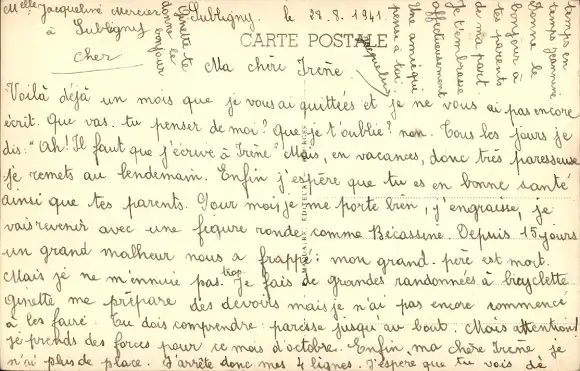 Melle Jacqueline Mercier
à Subligny
Cher
Subligny, le 28.8.1941.
CARTE POSTALE
Ma chère Irène.
Voilà déjà un mois que je vous ai quittées et je ne vous ai pas encore
écrit. Que vas-tu penser de moi? Que je t'oublie? non. Tous les jours je
dis: "Ah! Il faut que j'écrive à Irène" Mais, en vacances, donc très paresseuse
je remets au lendemain. Enfin j'espère que tu es en bonne santé
ainsi que tes parents. Pour moi, je me porte bien, j'engraisse, je
vais revenir avec une figure ronde comme Bécassine. Depuis 15 jours
un grand malheur nous a frappé: mon grand-père est mort.
Mais je ne m'ennuie pas trop. Je fais de grandes randonnées à bicyclette
ginette me prépare des devoirs mais je n'ai pas encore commencé
à les faire. Tu dois comprendre: paresse jusqu'au bout. Mais attention!
je prends des forces pour ce mois d'octobre. Enfin, ma chère Irène je
n'ai plus de place. J'arrête donc mes 4 lignes. J'espère que tu vois de
temps en
temps Jeannine
Donne le
bonjour à
tes parents
de ma part
Je t'embrasse
affectueusement
Une amie qui
pense à toi.
Jacqueline
Ginette te
donne le
bonjour